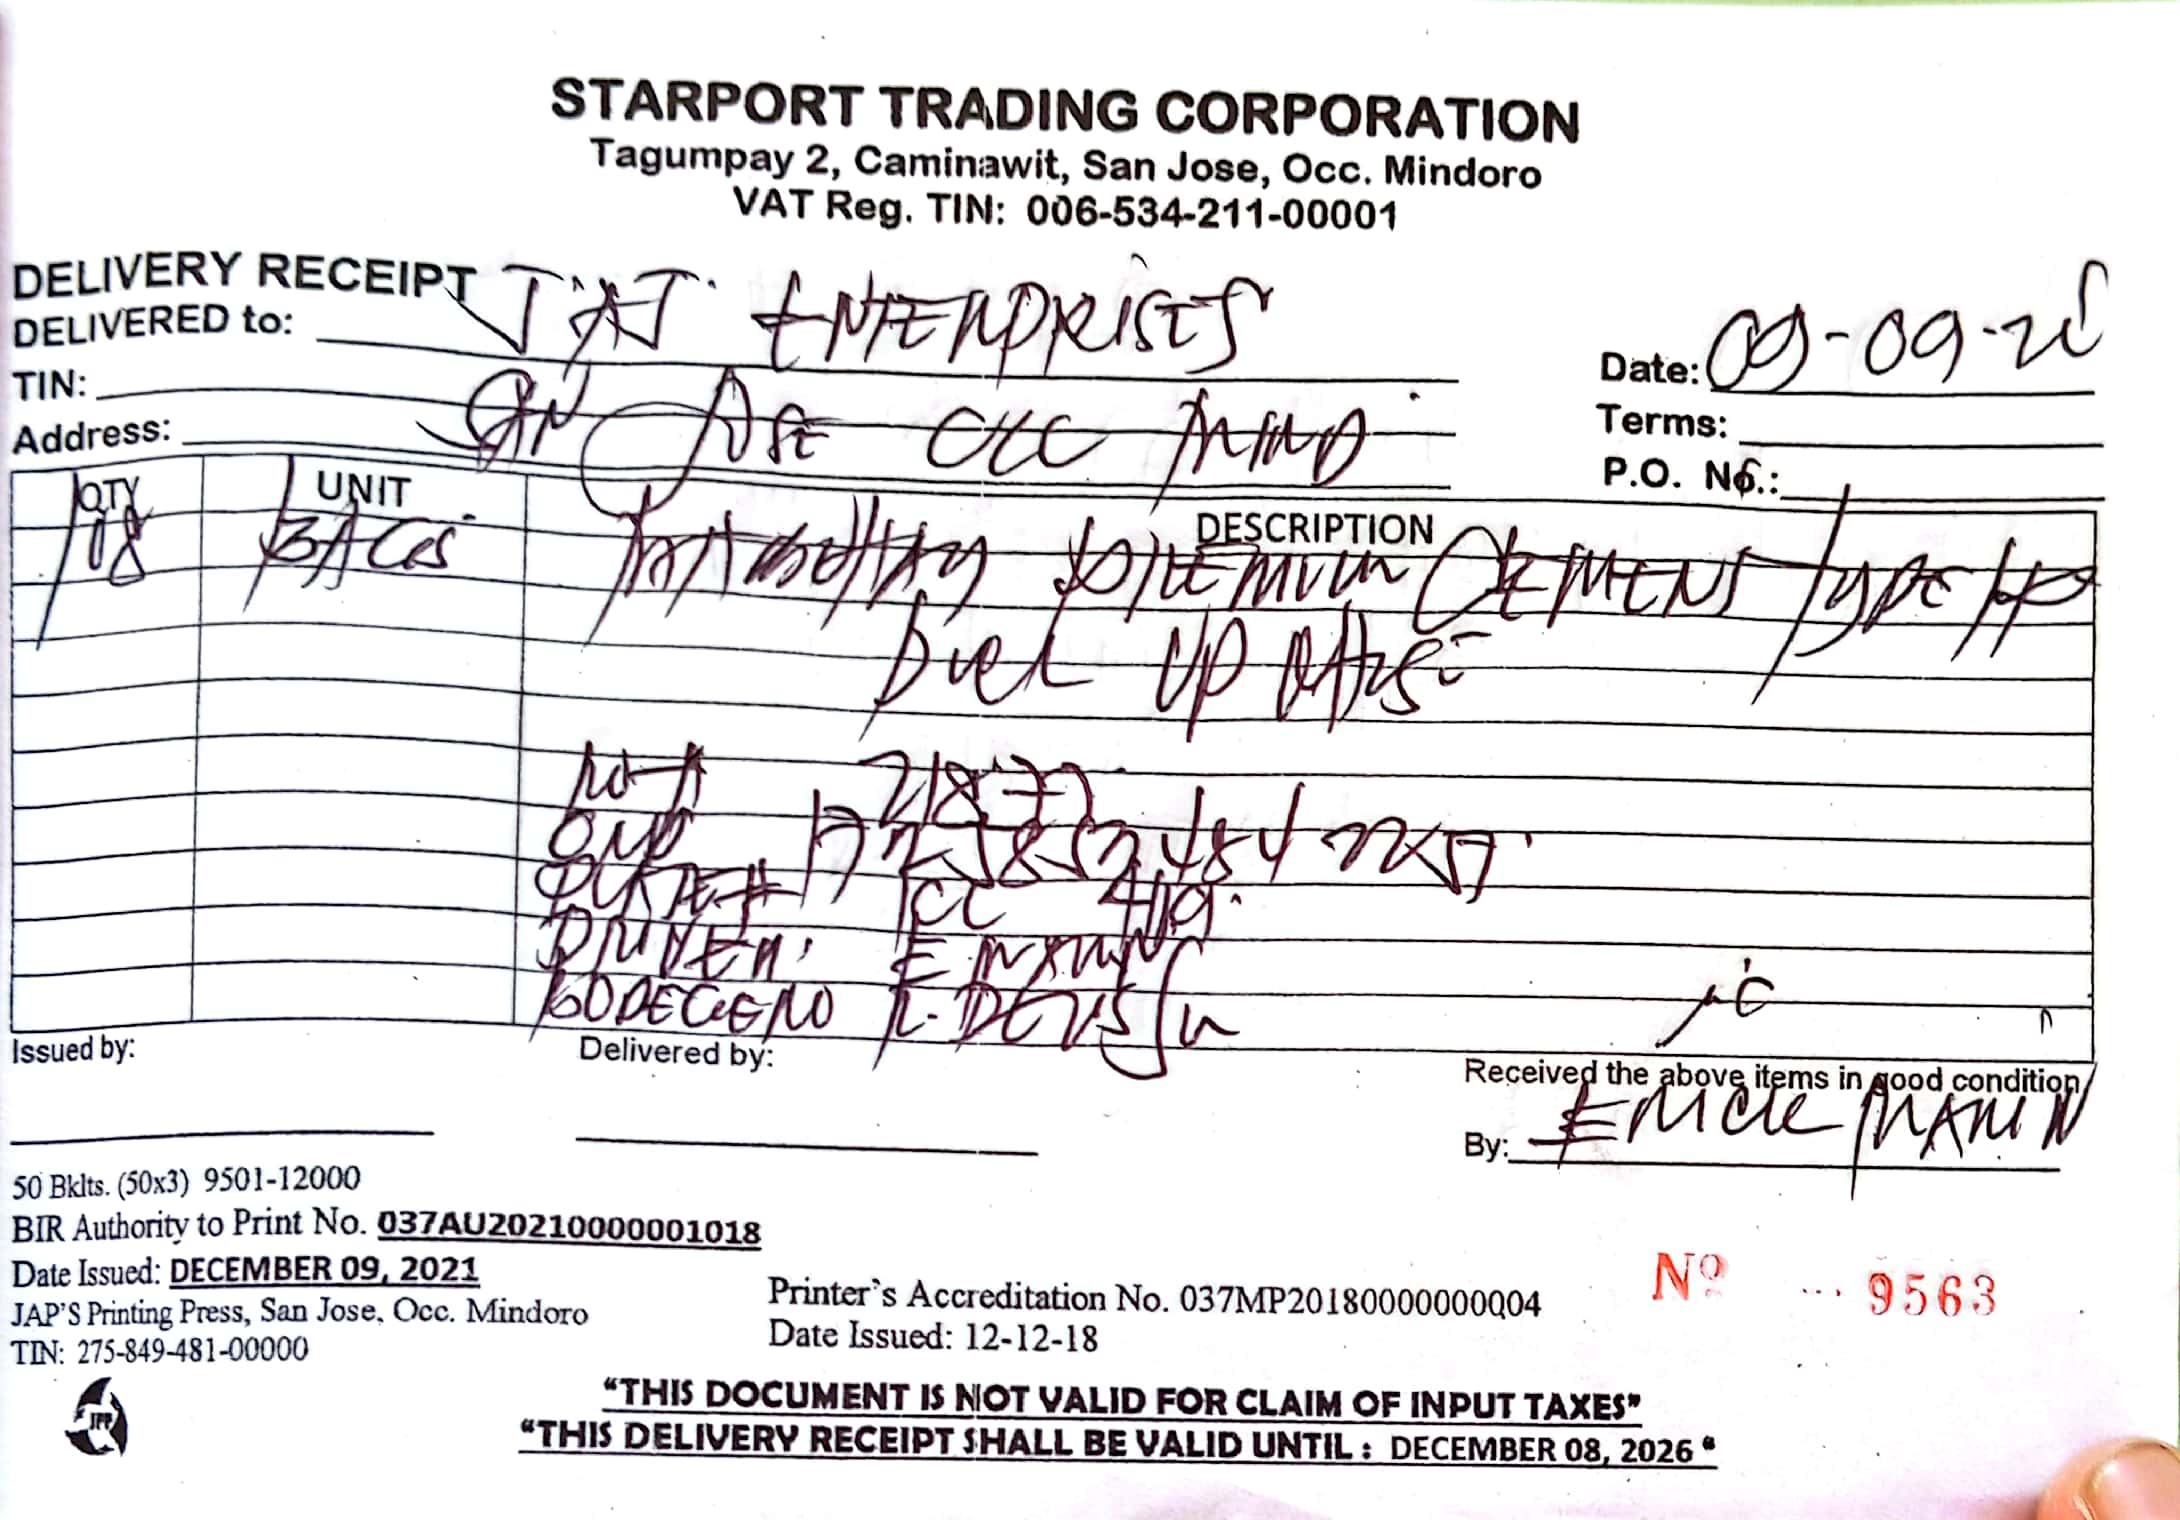 STARPORT TRADING CORPORATION
Tagumpay 2, Caminawit, San Jose, Occ. Mindoro
VAT Reg. TIN: 006-534-211-00001
DELIVERY RECEIPT
DELIVERED to: ENTERPRISES
Date: 09-09-25
TIN:
Terms:
Address: SAN JOSE OCC MINDO
P.O. No.:
QTY UNIT DESCRIPTION
108 BAGS PREMIUM CEMENT TYPE 1P
21877
PLATE #
DRIVER:
BODEGERO
Issued by:
Delivered by:
Received the above items in good condition
By: ERICK MARIN
50 Bklts. (50x3) 9501-12000
BIR Authority to Print No. 037AU20210000001018
Date Issued: DECEMBER 09, 2021
JAP'S Printing Press, San Jose, Occ. Mindoro
TIN: 275-849-481-00000
Printer's Accreditation No. 037MP20180000000004
Date Issued: 12-12-18
Nº 9563
JPP
“THIS DOCUMENT IS NOT VALID FOR CLAIM OF INPUT TAXES”
“THIS DELIVERY RECEIPT SHALL BE VALID UNTIL : DECEMBER 08, 2026 “